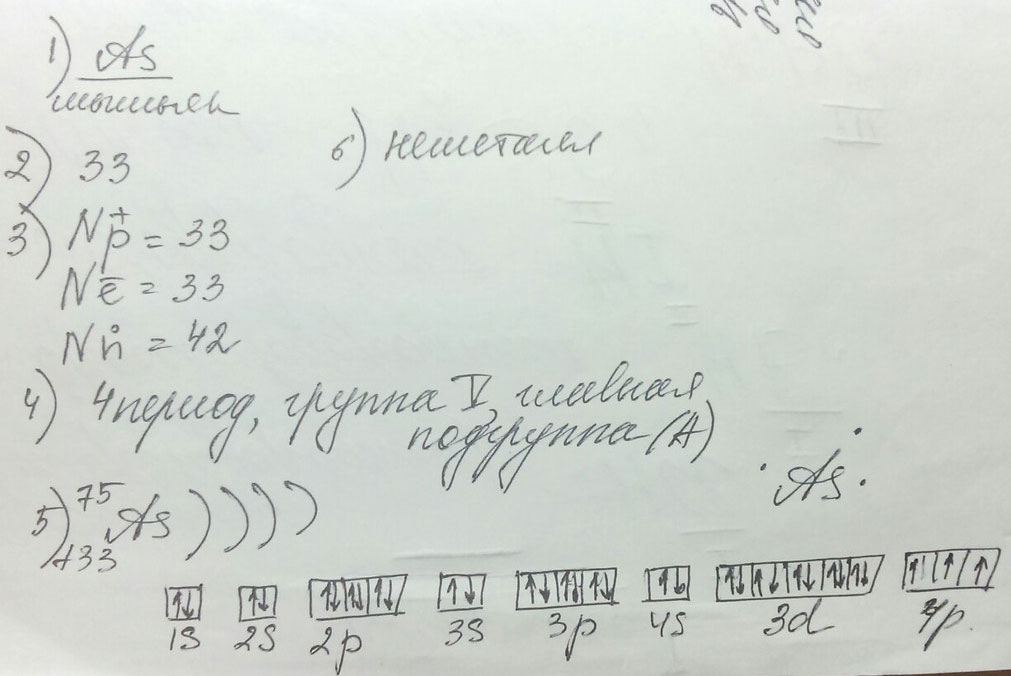 1) As
мышьяк
2) 33
6) неметалл
3) Np⁺ = 33
Nē = 33
Nn⁰ = 42
4) 4 период, группа V, главная
подгруппа (А)
·As·
5) ⁷⁵₊₃₃As ) ) ) )
↑↓ ↑↓ ↑↓↑↓↑↓ ↑↓ ↑↓↑↓↑↓ ↑↓ ↑↓↑↓↑↓↑↓↑↓ ↑ ↑ ↑
1s 2s 2p 3s 3p 4s 3d 4p